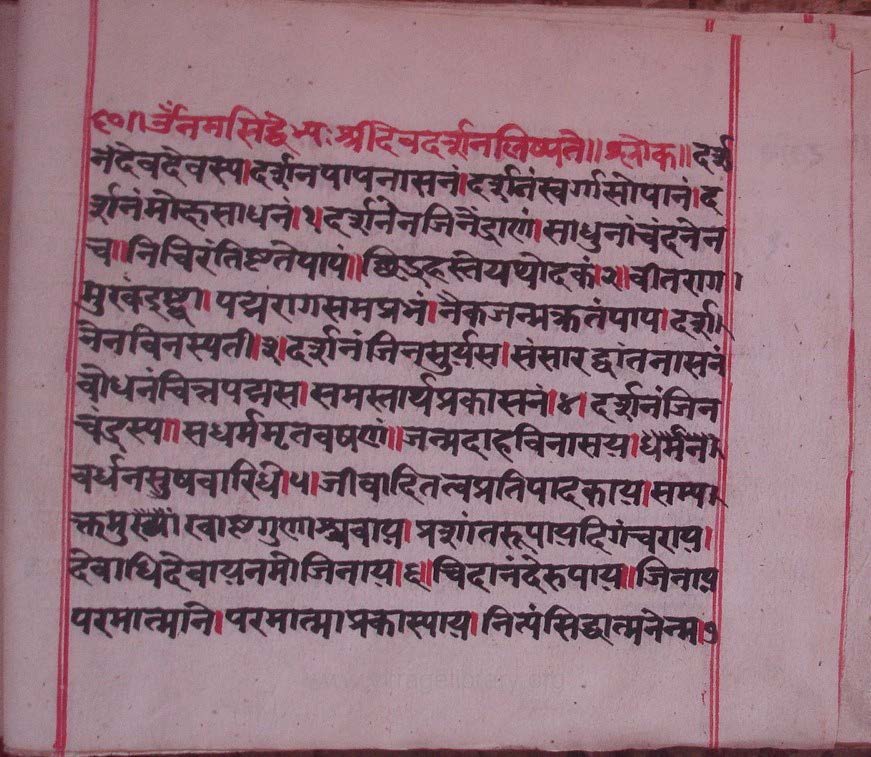 ९०॥ॐनमसिद्धेभ्यः श्रीदेवदर्शनलिष्यते॥श्लोक॥दर्श
नंदेवदेवस्य।दर्शनपापनासनं।दर्शनंस्वर्गसोपानं।द
र्शनंमोक्षसाधनं।१।दर्शनेनजिनेंद्राणं।साधुनांवंदनेन
च॥नचिरंतिष्टतेपापं॥छिद्रहस्तेयथोदकं।२॥वीतराग।
मुखंदृष्ट्वा।पद्मरागसमप्रभं।नैकजन्मकृतंपाप।दर्श।
नेनविनस्यती।३।दर्शनंजिनसुर्यस।संसारद्धांतनासनं
बोधनंचित्तपद्मस।समस्तार्थप्रकासनं।४।दर्शनंजिन
चंद्रस्य॥सधर्ममृतवषणं॥जन्मदाहविनासय।
वर्धनसुषवारिधी।५।जीवादितत्वप्रतिपादकाय।सम्य।
क्तमुख्या।स्वाष्टगुणाश्रयाय।प्रशांतरूपायदिगंबराय।
देवाधिदेवायनमोजिनाय।६॥चिदानंदेरुपाय॥जिनाय
परमात्मने।परमात्माप्रकास्याय।नित्यंसिद्धात्मनेन्म।७